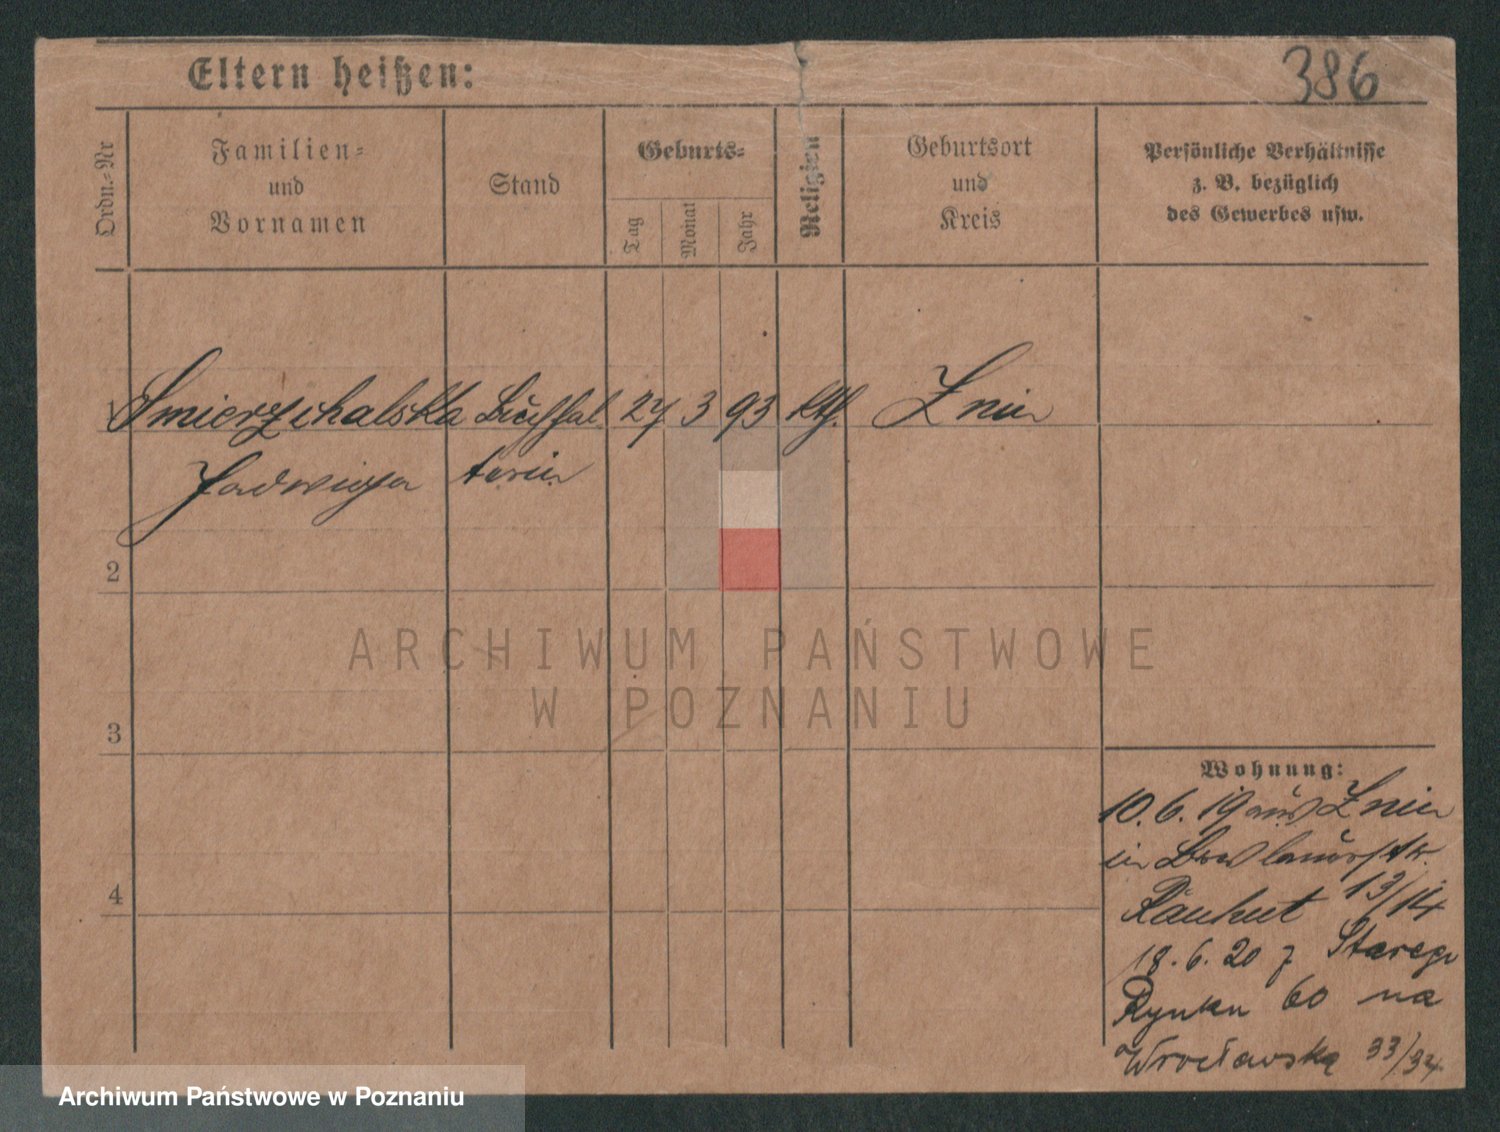 Eltern heißen:
386
Ordn.-Nr
Familien-
und
Vornamen
Stand
Geburts-
Tag
Monat
Jahr
Religion
Geburtsort
und
Kreis
Persönliche Verhältnisse
z. B. bezüglich
des Gewerbes usw.
1 Smierzchalska Buchhal 27 3 93 kth. Znin
Jadwiga terin
2
3
4
ARCHIWUM PAŃSTWOWE
W POZNANIU
Wohnung:
10. 6. 19 aus Znin
in Breslauerstr.
Rauhut 13/14
18. 6. 20 z Starego
Rynku 60 na
Wrocławską 33/34
Archiwum Państwowe w Poznaniu